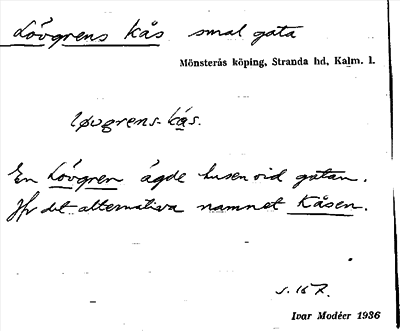 Lövgrens kås smal gata
Mönsterås köping, Stranda hd, Kalm. l.
løvgrens-kås.
En Lövgren ägde husen vid gatan.
Jfr det alternativa namnet Kåsen.
s. 167.
Ivar Modéer 1936